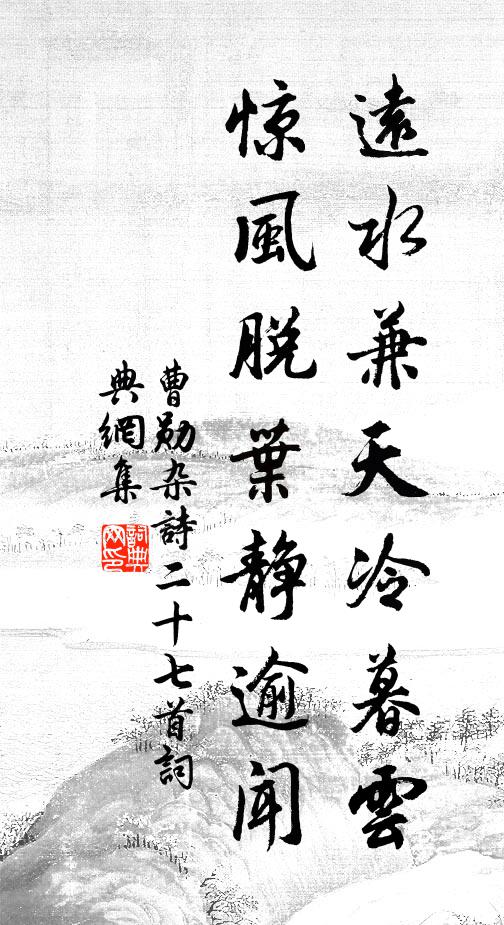 遠水兼天冷暮雲
惊風脱葉静逾聞
曹勛杂詩二十七首詞
典網集
詞典网印